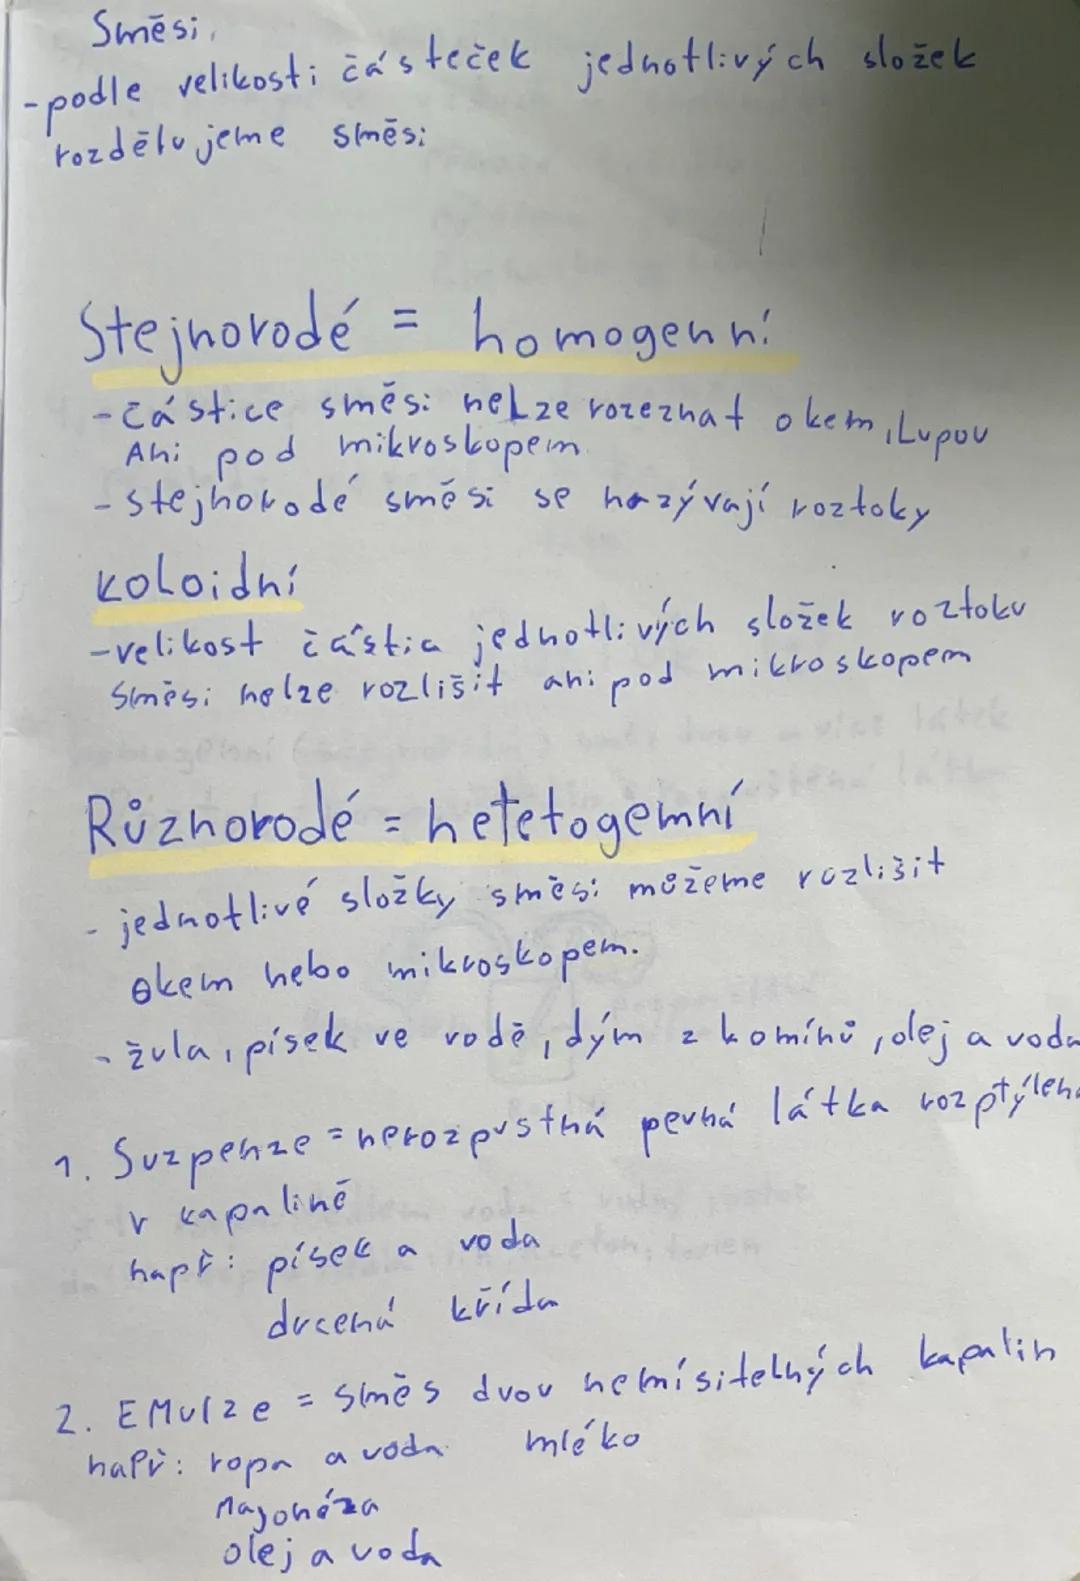 Směsi
-podle velikosti částeček jednotlivých složek
rozdělujeme směsi
Stejnorodé = homogenní
-částice směsi nelze rozeznat okem, Lupou
Ani pod mikroskopem.
-stejnorodé směsi se nazývají roztoky
koloidní
-velikost částic jednotlivých složek roztoku
směsi nelze rozlišit ani pod mikroskopem
Různorodé = hetetogemní
- jednotlivé složky směsi můžeme rozlišit
okem nebo mikroskopem.
- žula, písek ve vodě, dým z komínů, olej a voda
1. Suzpenze = nerozpustná pevná látka rozptýlena
v kapalině
např: písek a voda
drcená křída
2. EMulze = směs dvou nemísitelných kapalin
např: ropa a voda mléko
Majonéza
olej a voda